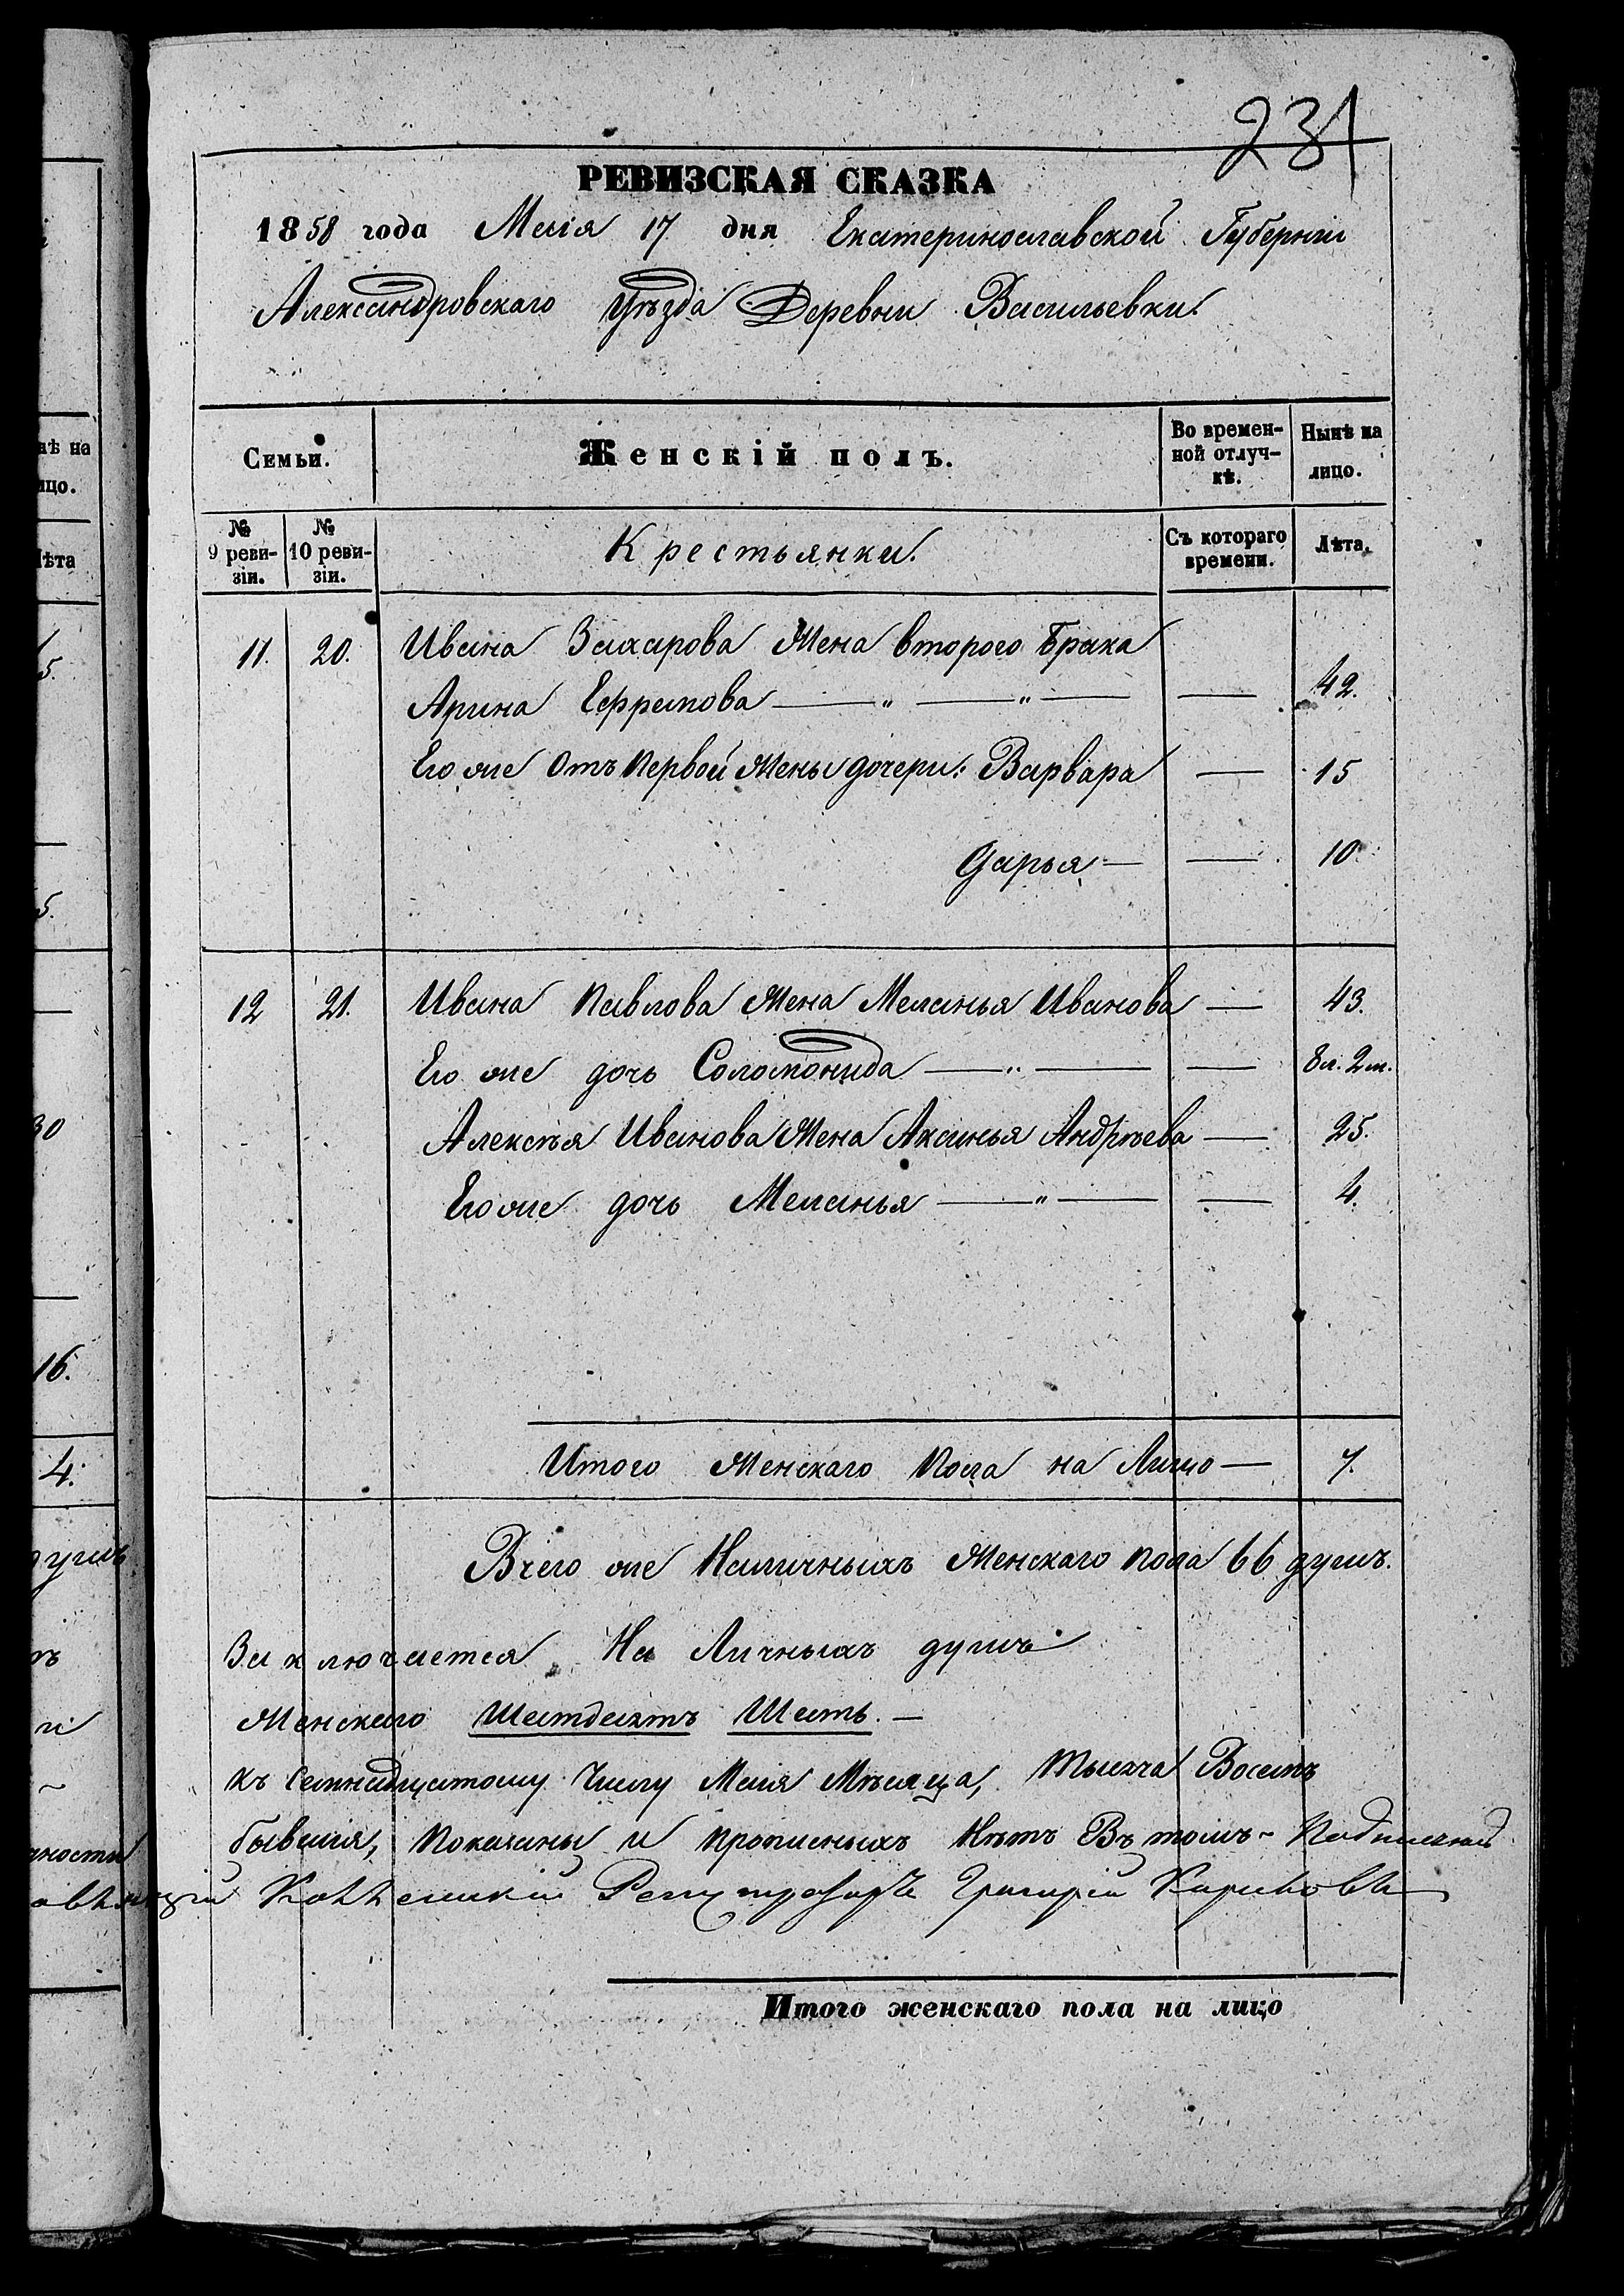 231
РЕВИЗСКАЯ СКАЗКА
1858 года Маія 17 дня Екатеринославской Губерніи
Александровскаго Уѣзда Деревни Васильевки.
Семьи.
Женскій полъ.
Во времен-
ной отлуч-
кѣ.
Нынѣ на
лицо.
№
9 реви-
зіи.
№
10 реви-
зіи.
Крестьянки.
Съ котораго
времени.
Лѣта.
11. 20. Ивана Захарова Жена второго Брака
Арина Ефремова — „ — „ — — 42.
Его же Отъ Первой Жены дочери: Варвара — 15
Дарья — — 10
12 21. Ивана Павлова Жена Меланья Иванова — 43.
Его же дочь Соломонида — „ — — 8 л. 2 м.
Алексѣя Иванова Жена Аксинья Андрѣева — 25.
Его же дочь Меланья — „ — — 4.
Итого Женскаго Пола на Лицо — 7.
Всего же Наличныхъ Женскаго пола 66 душъ.
Заключается На Личныхъ душъ
Женскаго Шестдесятъ Шесть. —
Къ Семнадцатому Числу Маія Мѣсяца, Тысяча Восемъ
бывшія, Показаны и прописныхъ Нѣтъ Въ томъ-
Коллежскій Регистраторъ Григорій
Итого женскаго пола на лицо
нѣ на
ицо.
Лѣта
5.
5.
30
16.
4.
душъ
ности